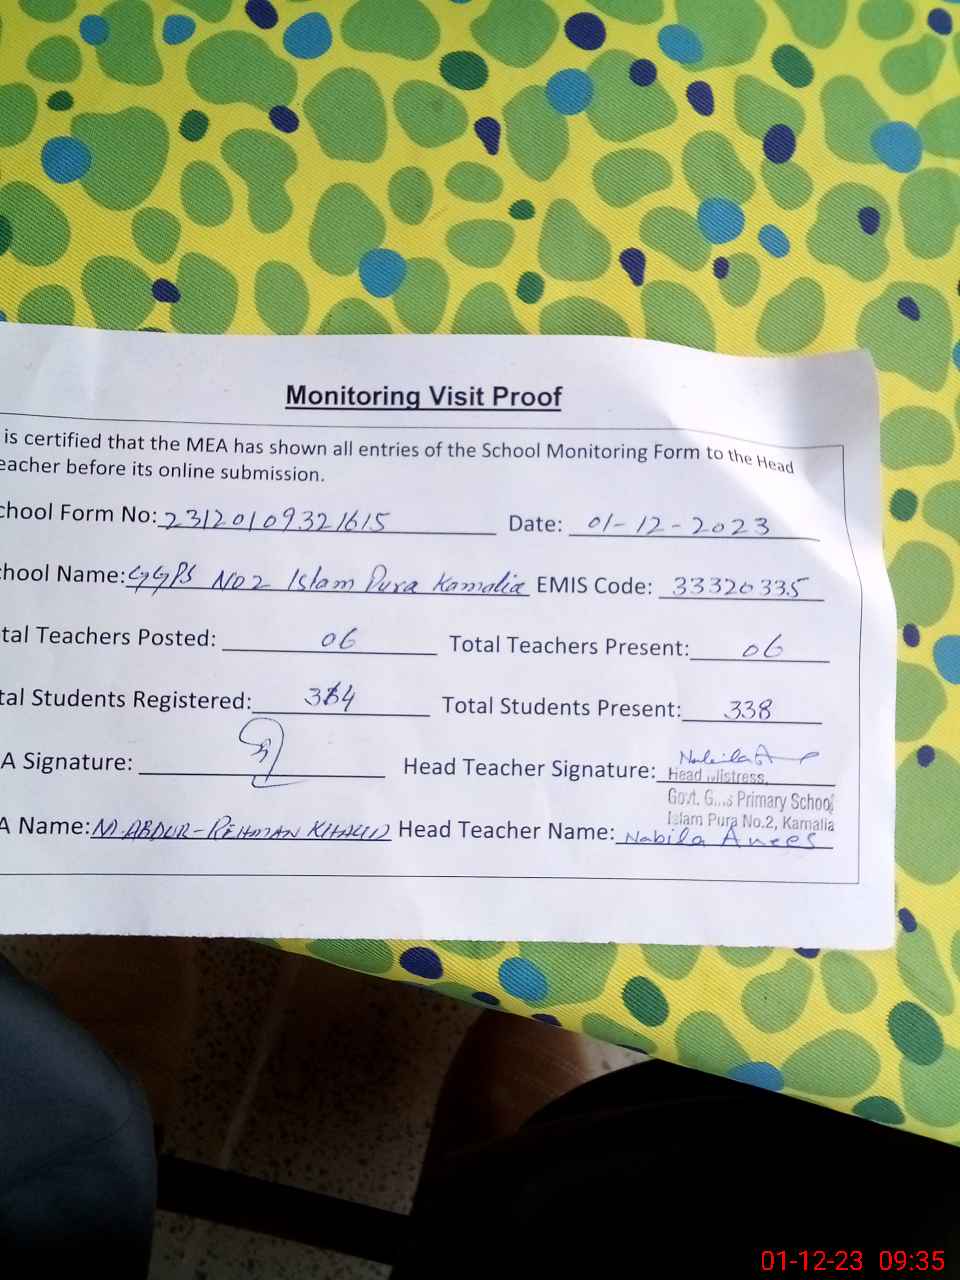 Monitoring Visit Proof
is certified that the MEA has shown all entries of the School Monitoring Form to the Head
eacher before its online submission.
chool Form No: 23120109321615 Date: 01-12-2023
chool Name: GGPS NO2 Islam Pura Kamalia EMIS Code: 33320335
tal Teachers Posted: 06 Total Teachers Present: 06
tal Students Registered: Total Students Present: 338
A Signature: Head Teacher Signature:
Head Mistress,
Govt. Girls Primary School
Islam Pura No.2, Kamalia
A Name: M. ABDUR-REHMAN KHALID Head Teacher Name: Nabila Anees
01-12-23 09:35